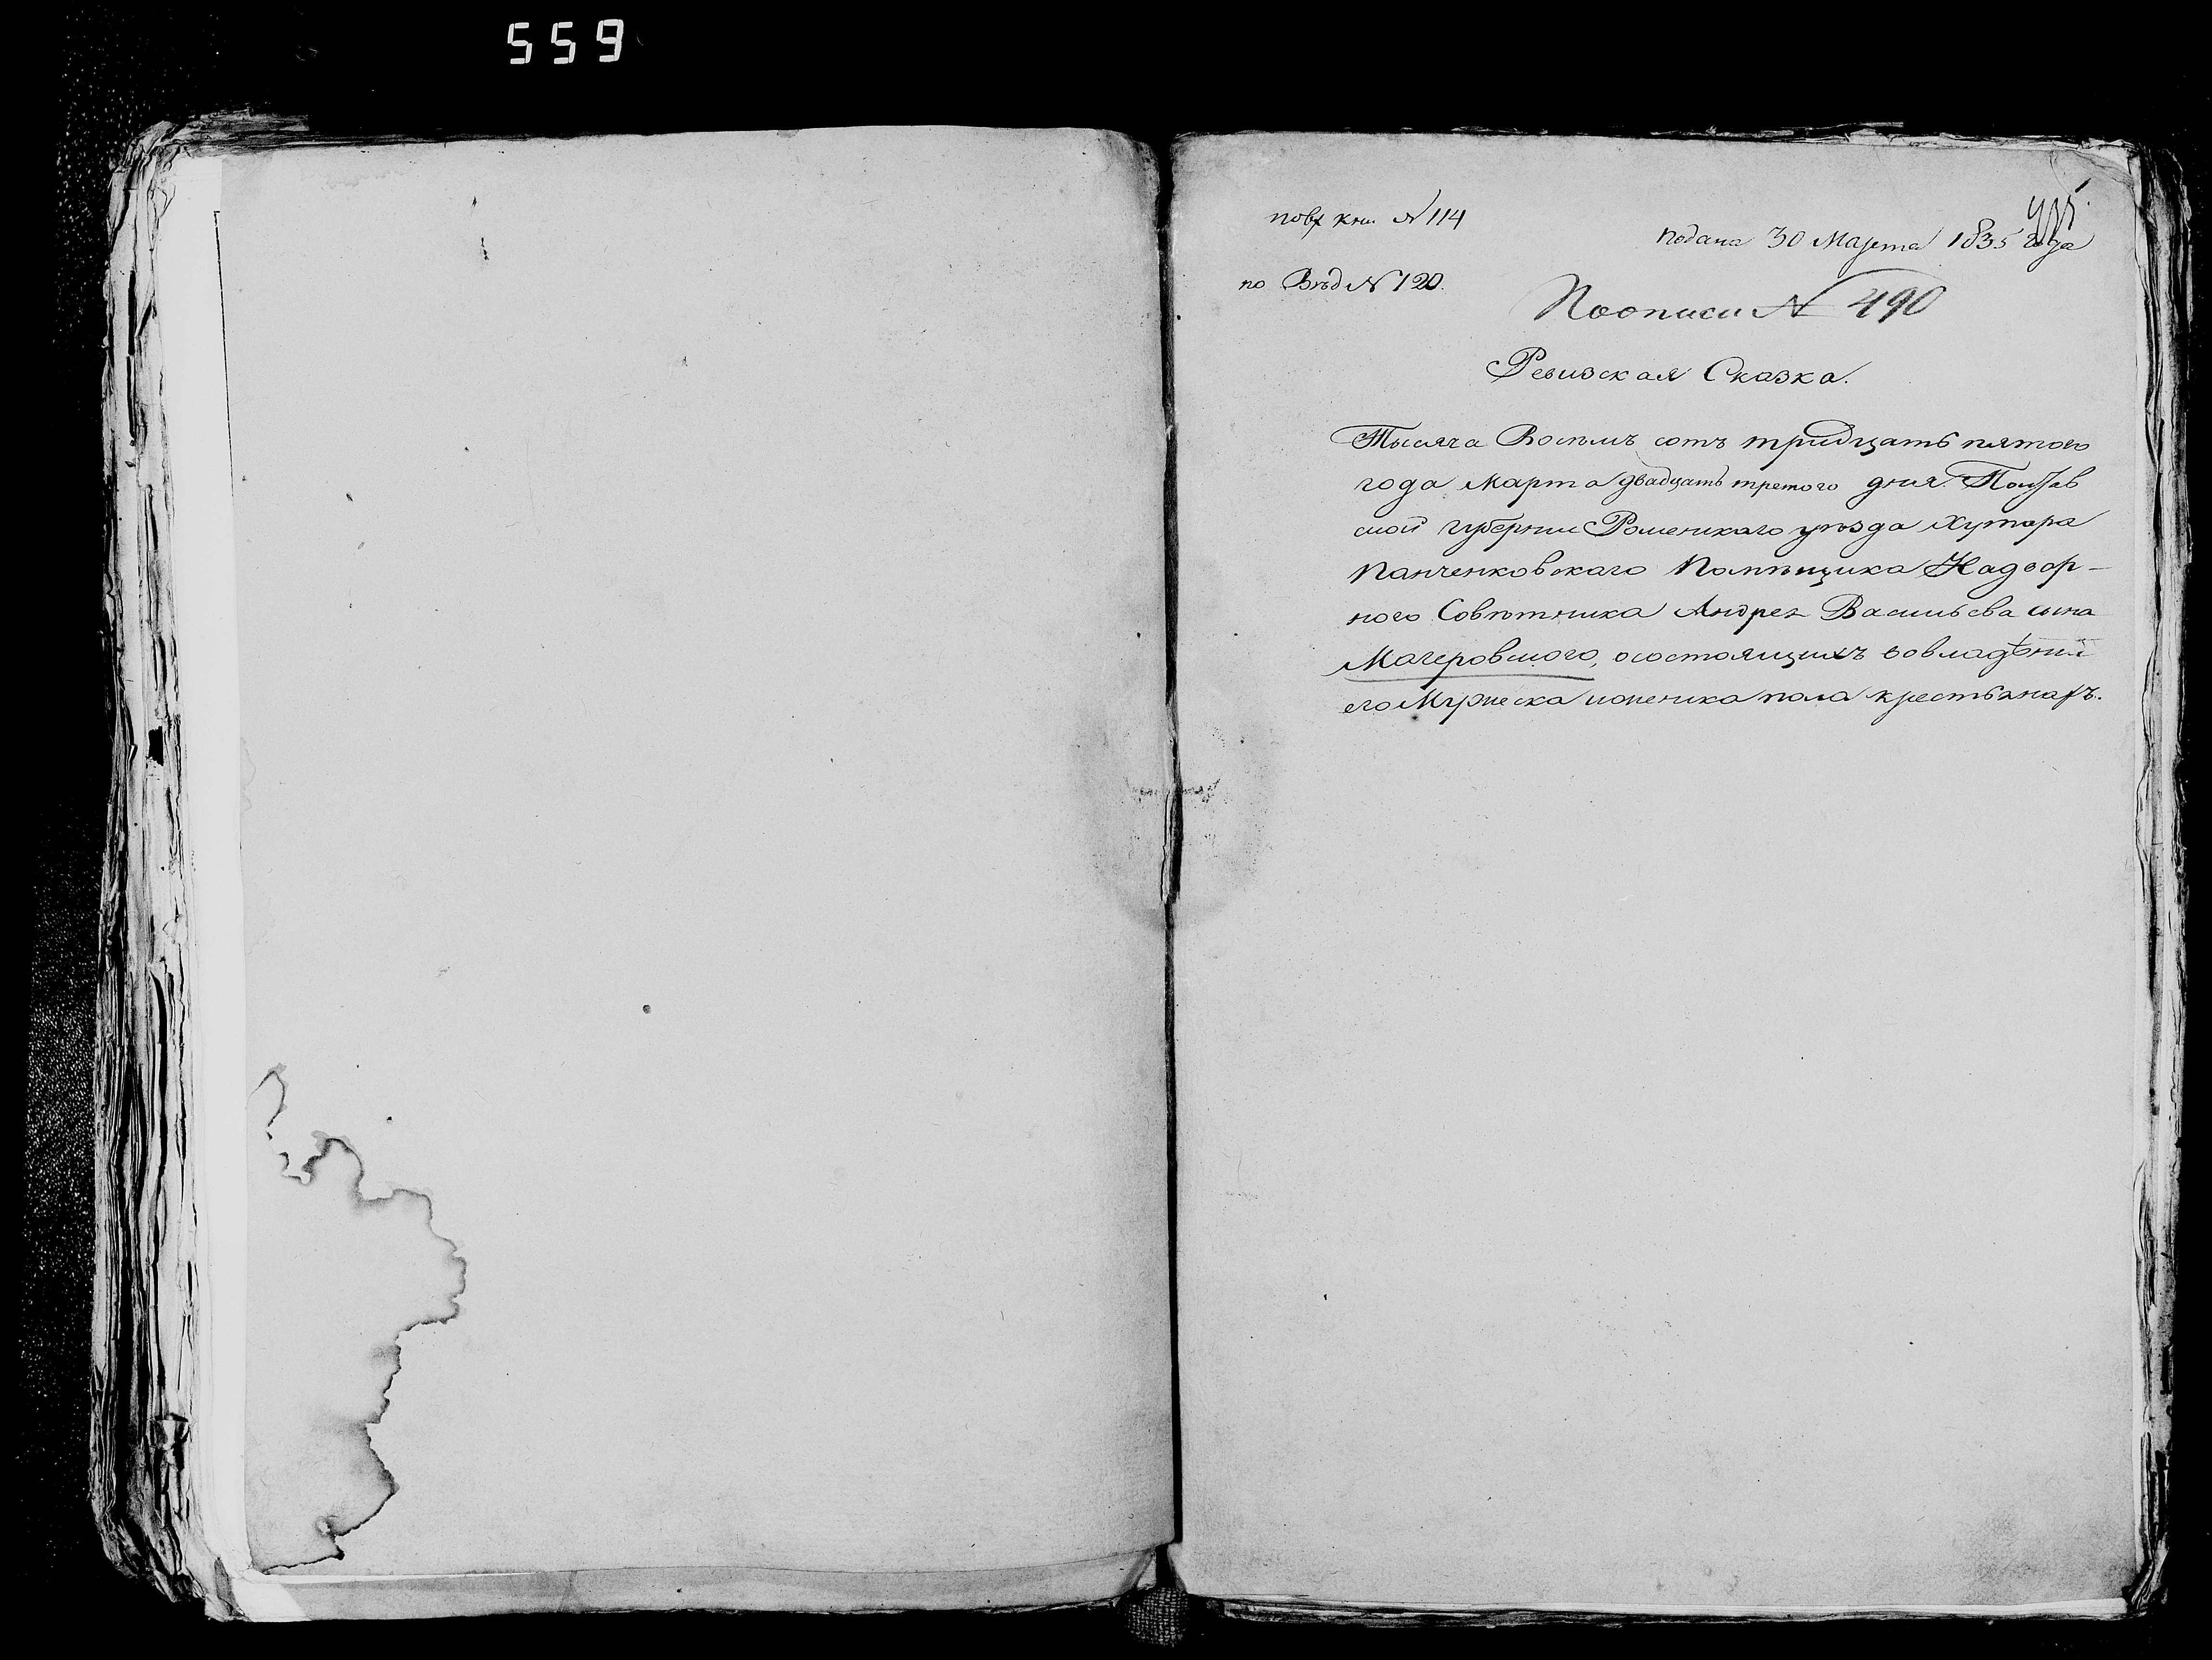 559
по вх кни № 114
Подана 30 Марта 1835 года
по Вѣд № 120.
По описи № 490
Ревизская Сказка.
Тысяча Восемъ сотъ тридцать пятого
года Марта двадцать третого дня. Полтав
ской губернии Роменскаго уѣзда Хутора
Панченковскаго Помѣщика Надвор-
ного Совѣтника Андрея Васильева сына
Магеровского, о состоящихъ во владѣнии
его Мужеска и женска пола крестьянахъ.